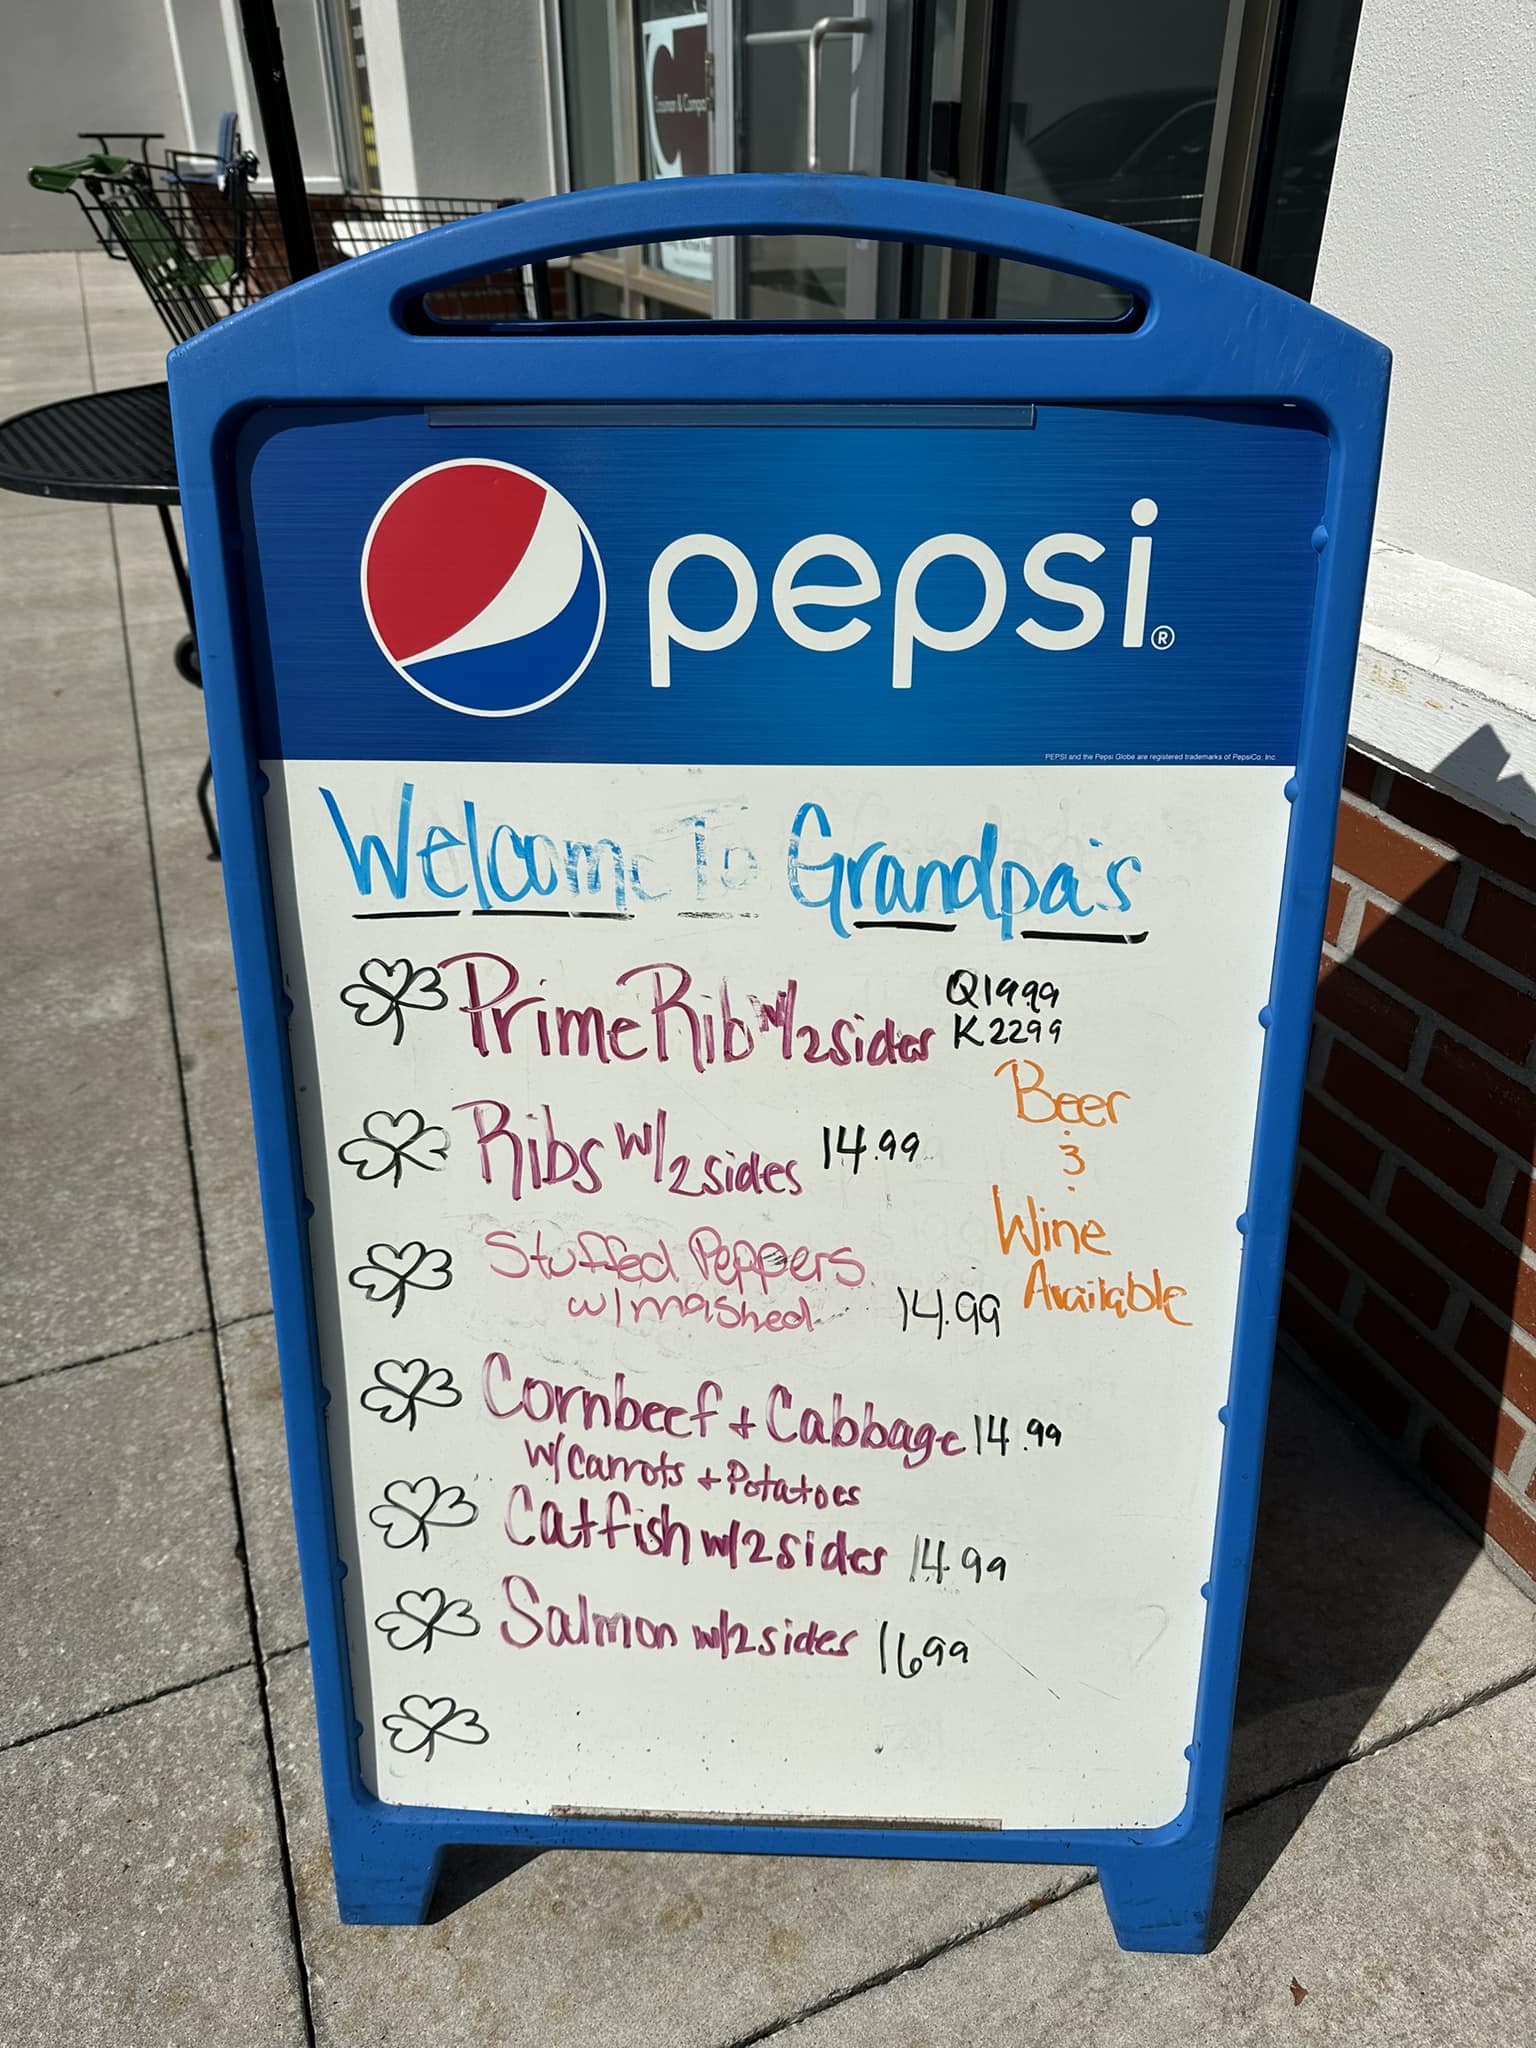 pepsi®
PEPSI and the Pepsi Globe are registered trademarks of PepsiCo, Inc.
Welcome To Grandpa's
Prime Rib w/2sides Q1999
K2299
Beer
&
Wine
Available
Ribs w/2sides 14.99
Stuffed Peppers
w/mashed 14.99
Cornbeef + Cabbage 14.99
w/carrots + Potatoes
Catfish w/2sides 14.99
Salmon w/2sides 1699